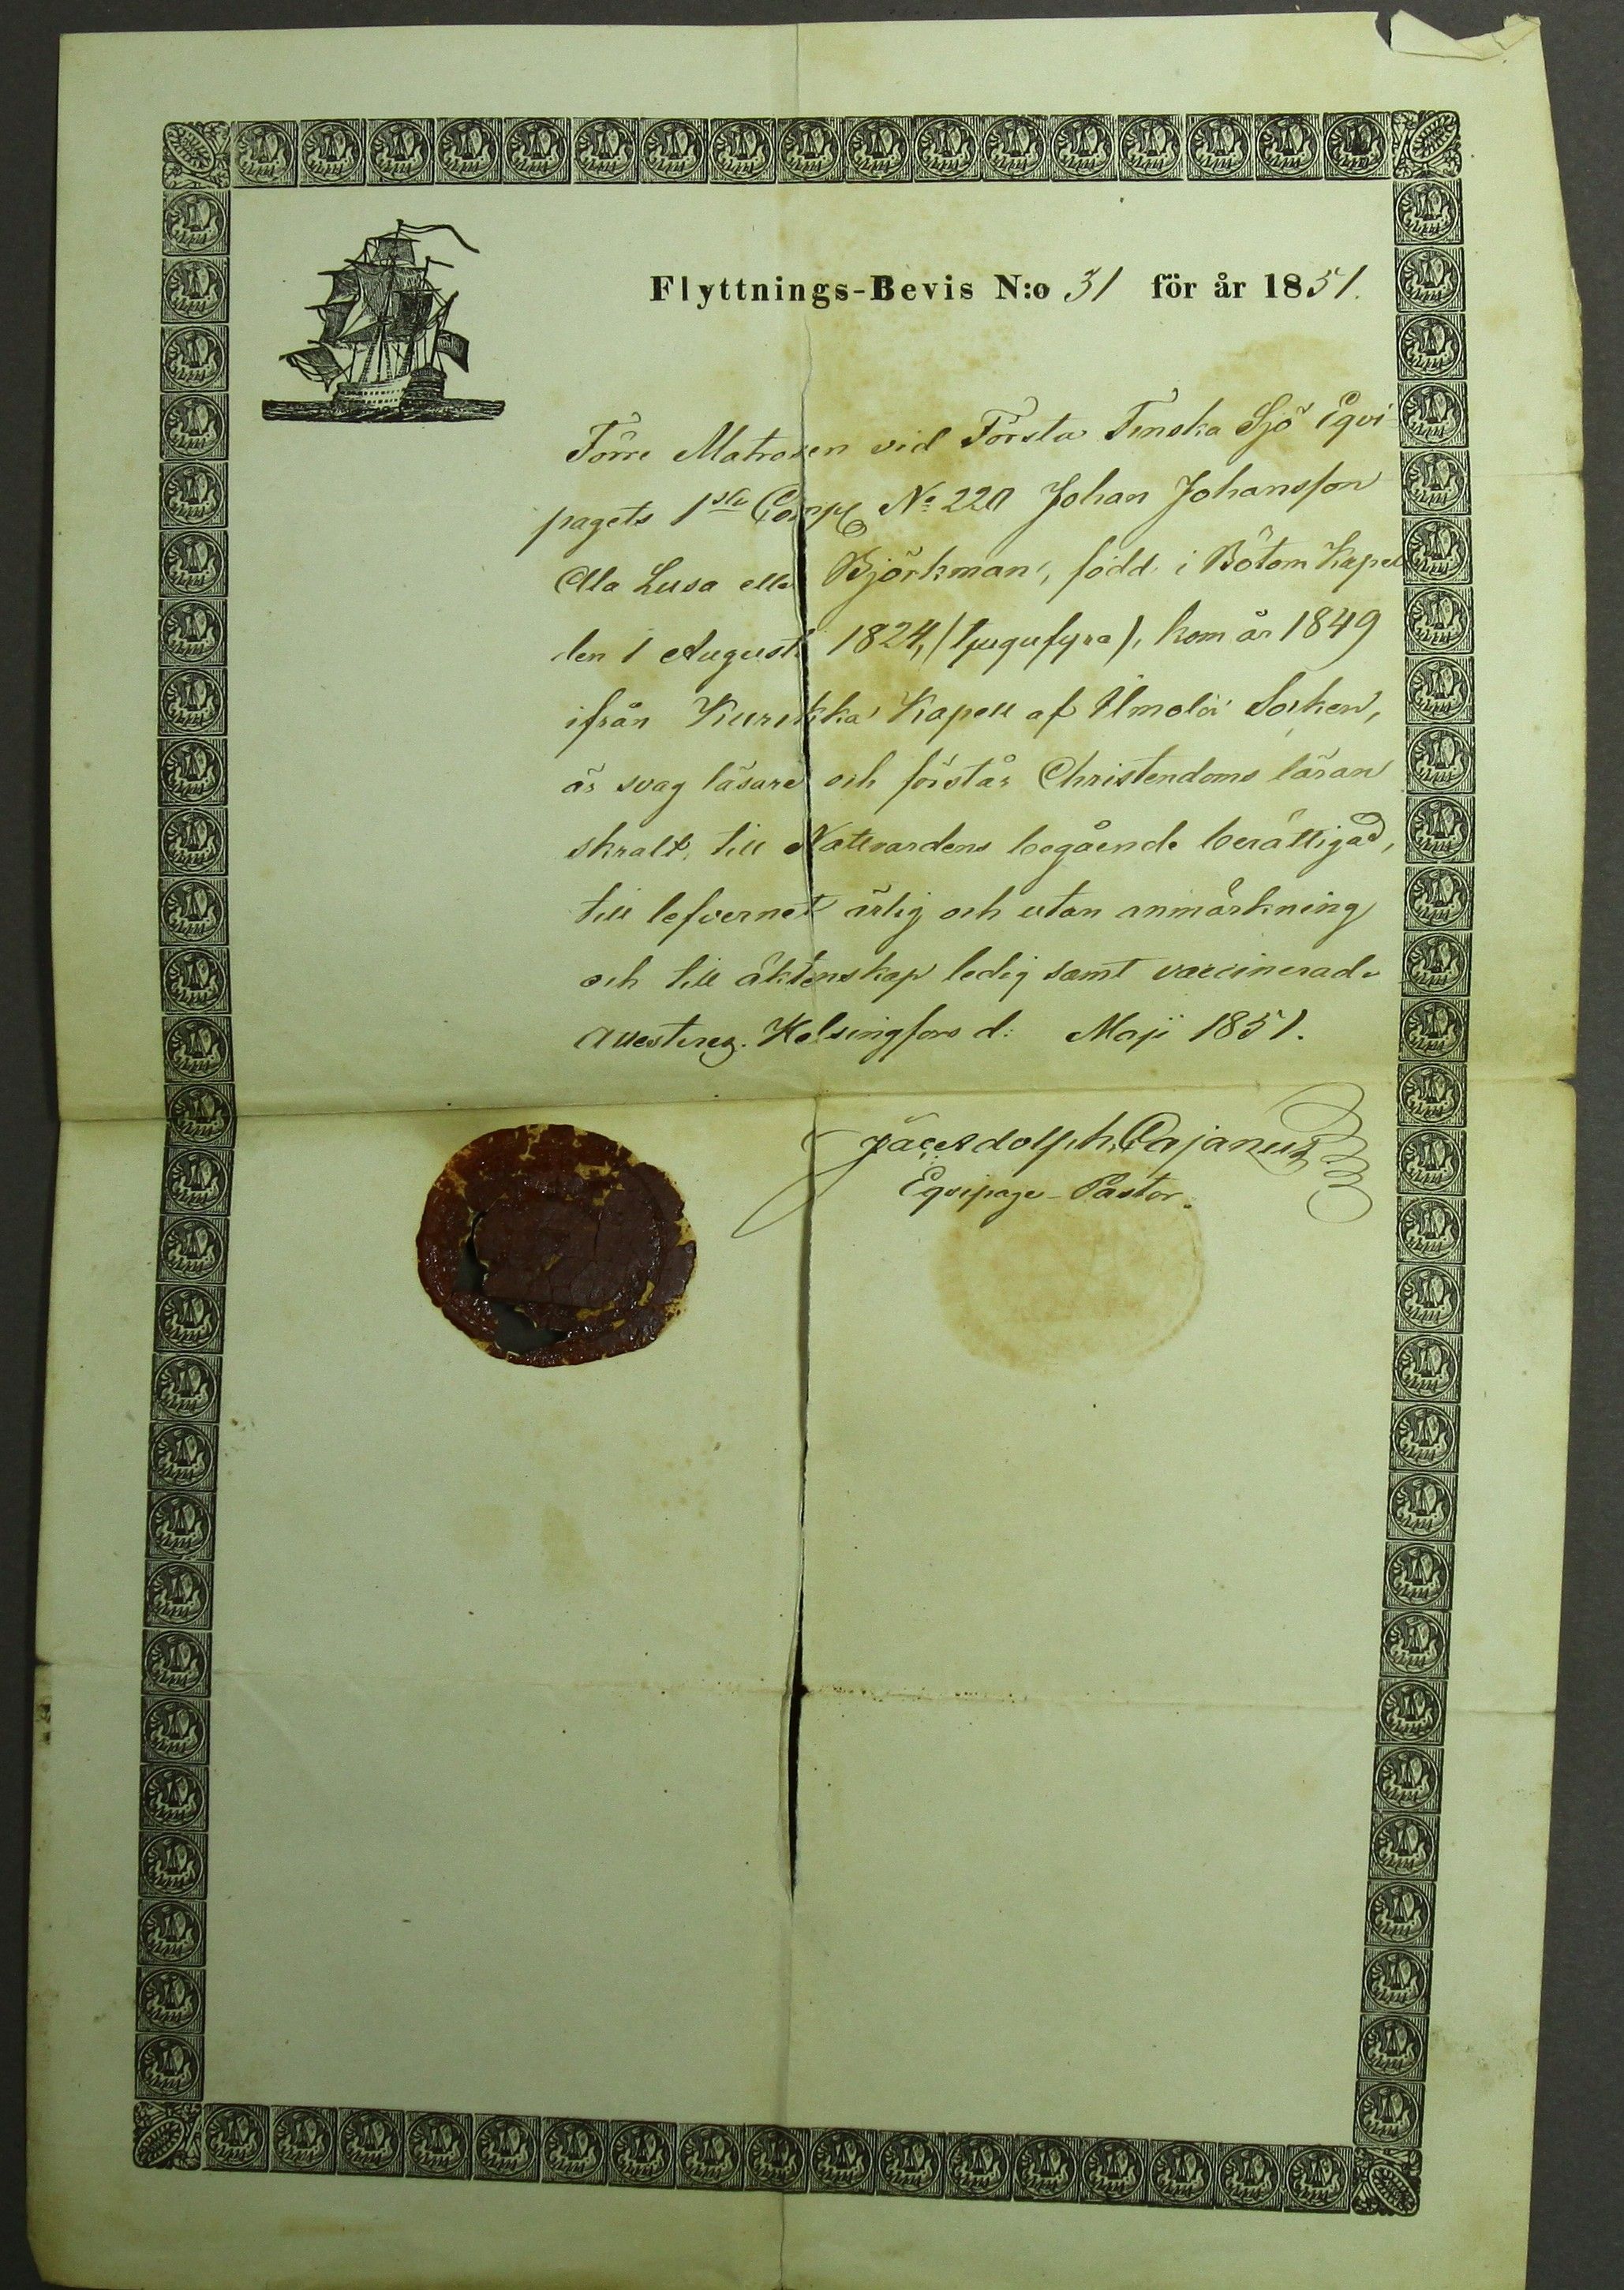 Flyttnings-Bevis N:o 31 för år 1851.
Förre Matrosen vid Första Finska Sjö Eqvi-
pagets 1sta Comp. No 220 Johan Johansson
Ala Lusa eller Björkman, född i Bötom Kapell
den 1 Augusti 1824, (tjugufyra), kom år 1849
ifrån Kurikka Kapell af Ilmola Socken,
är svag läsare och förstår Christendoms läran
skralt, till Nattvardens begående berättigad,
till lefvernet ärlig och utan anmärkning
och till äktenskap ledig samt vaccinerad.
attesteras. Helsingfors d: Maji 1851.
Adolph Cajanus
Eqvipage-Pastor.